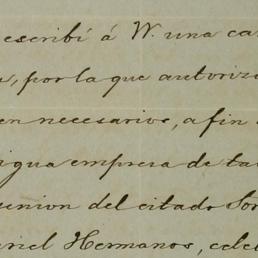 escribí á W. una ca
, por la que autoriz
en necesarios, a fin
igua empresa de ta
union del citado Sor
riel Hermanos, cele